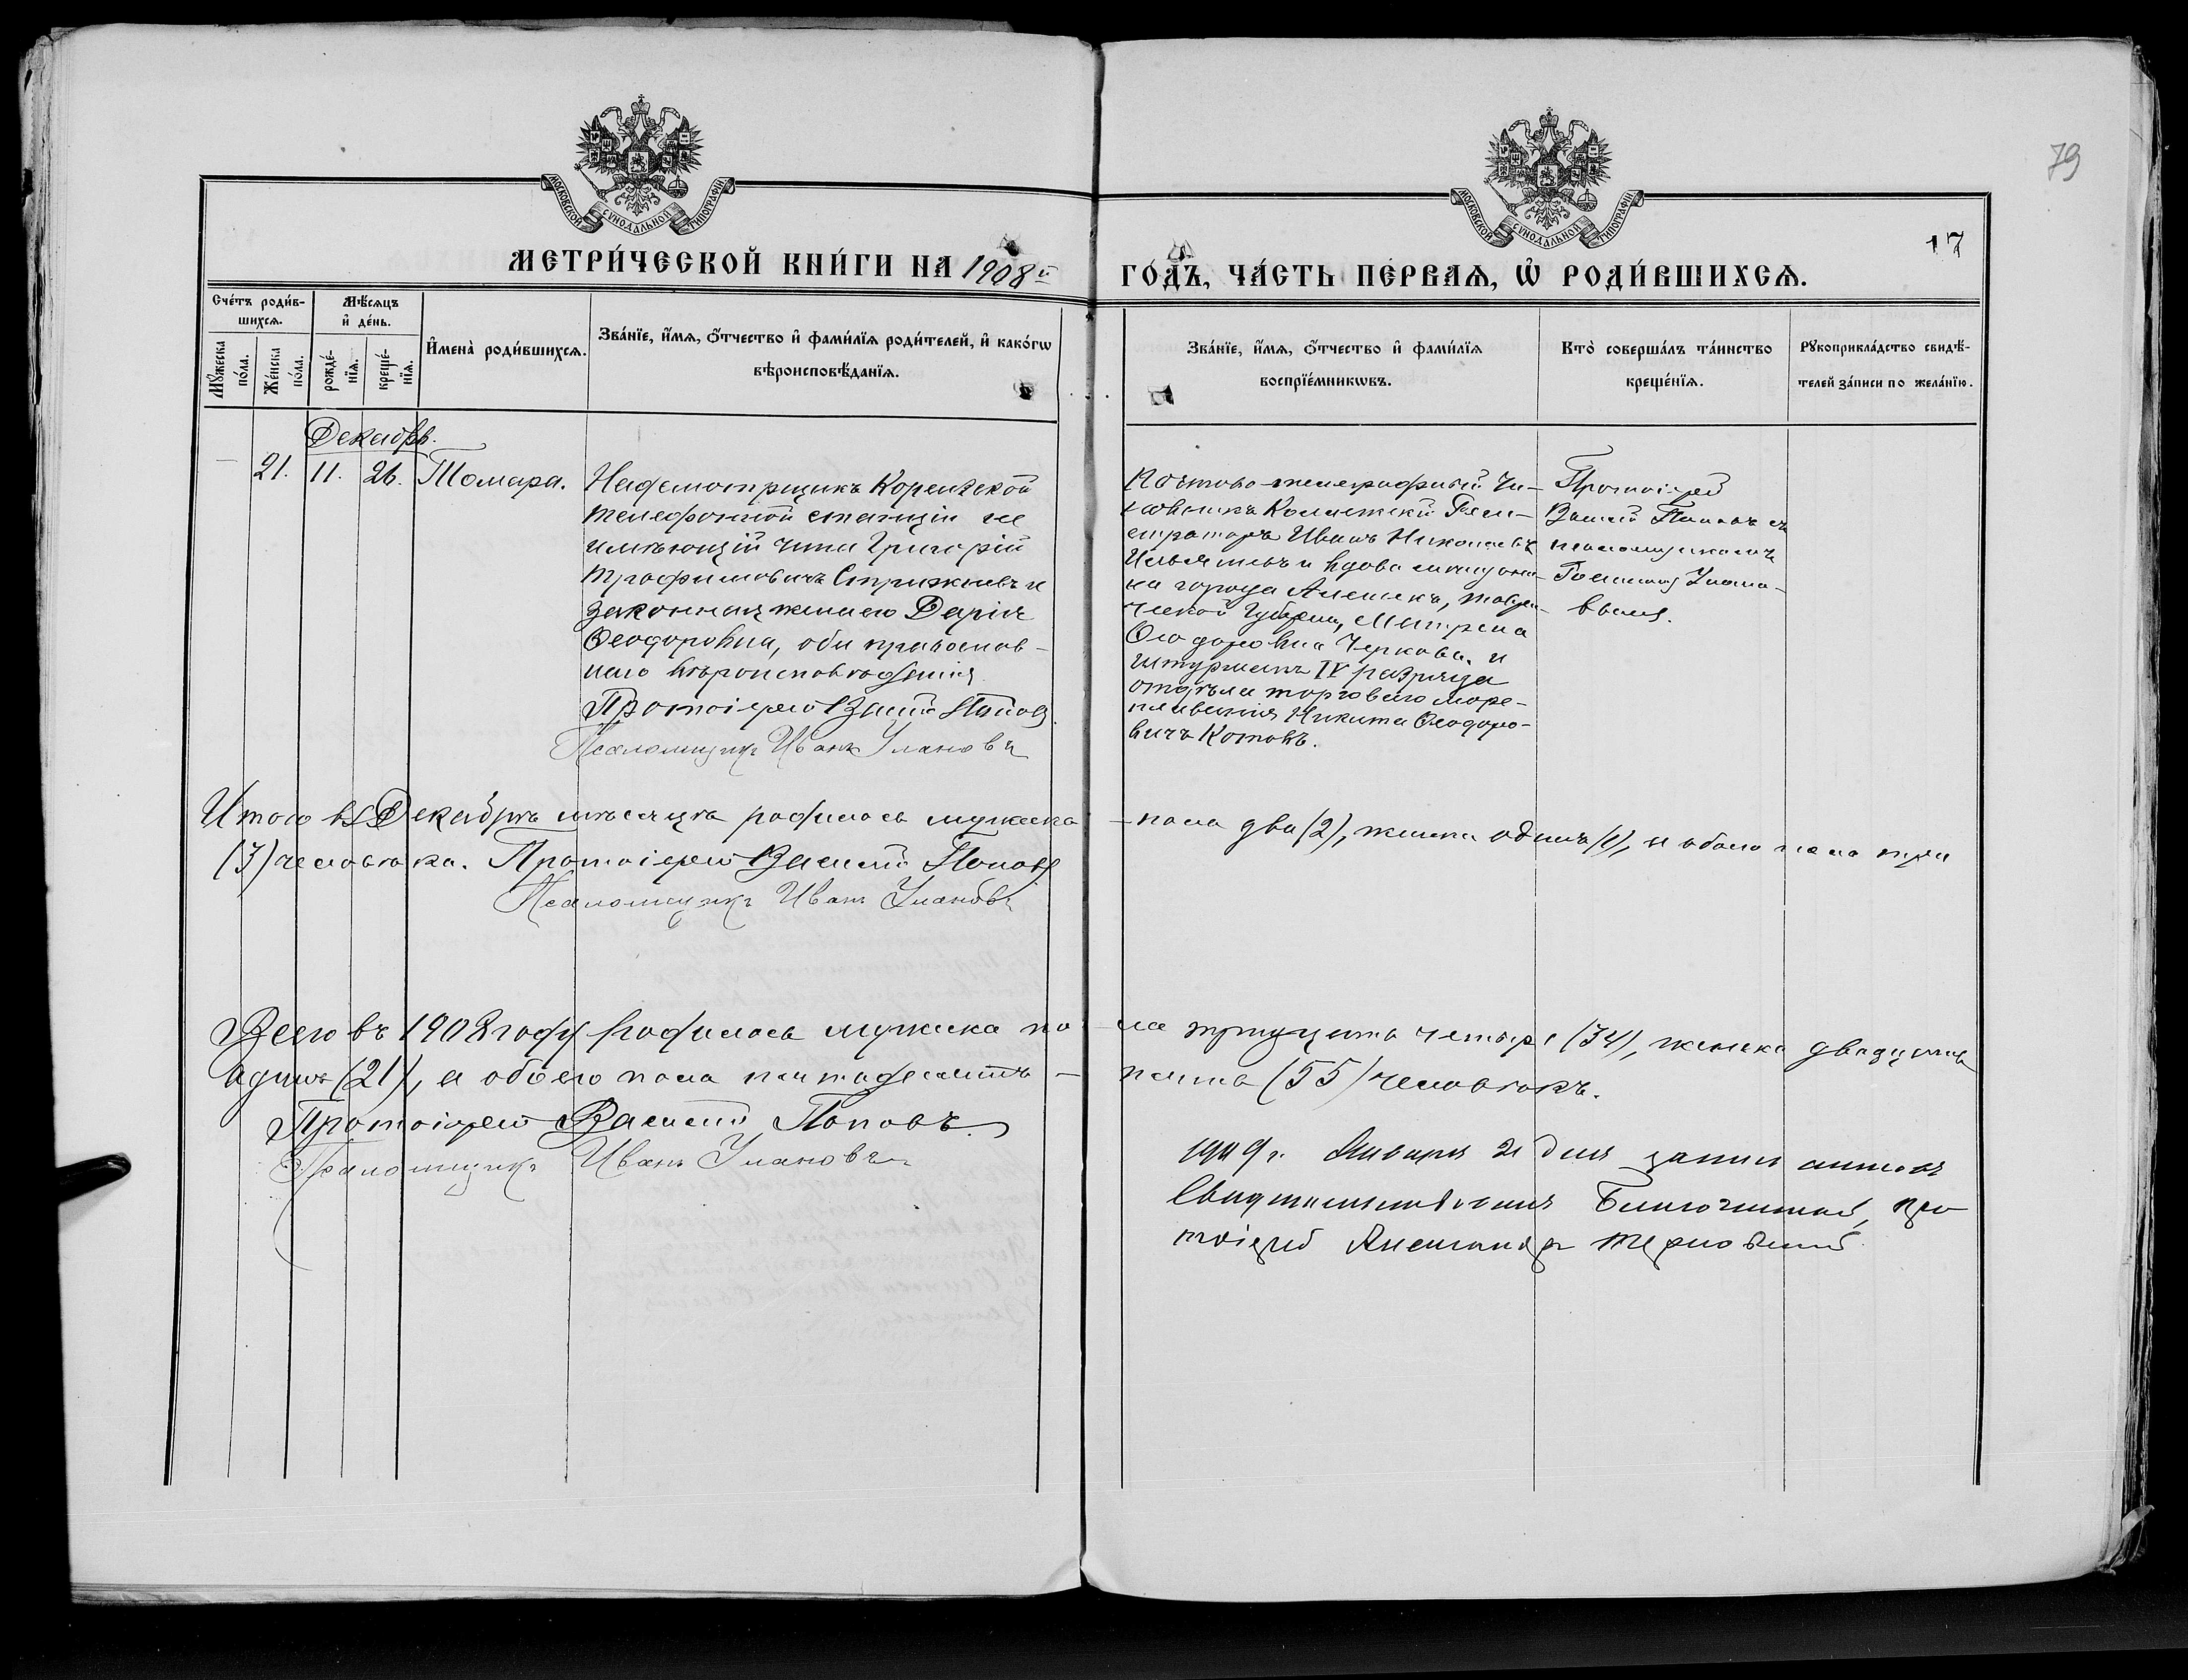 79
17
МОСКОВСКОЙ СѴНОДАЛЬНОЙ ТИПОГРАФІИ
МОСКОВСКОЙ СѴНОДАЛЬНОЙ ТИПОГРАФІИ
МЕТРИ́ЧЕСКОЙ КНИ́ГИ НА 1908й
ГО́ДЪ, ЧА́СТЬ ПЕ́РВАѦ, Ѡ҆ РОДИ́ВШИХСѦ.
Сче́тъ роди́в-
шихсѧ.
Мꙋ́жеска по́ла.
Же́нска по́ла.
Мѣ́сѧцъ
и҆ де́нь.
рожде́-нїѧ.
креще́-нїѧ.
И҆мена̀ роди́вшихсѧ.
Зва́нїе, и҆́мѧ, ѻ҆́тчество и҆ фами́лїѧ роди́телей, и҆ како́гѡ
вѣроисповѣ́данїѧ.
Зва́нїе, и҆́мѧ, ѻ҆́тчество и҆ фами́лїѧ
воспрїе́мникѡвъ.
Кто̀ соверша́лъ та́инство
креще́нїѧ.
Рꙋкоприкла́дство свидѣ́-
телей за́писи по жела́нїю.
Декабрь.
— 21. 11. 26. Томара.
Надсмотрщикъ
телефонной станціи не
имѣющій чина Григорій
Трофимовичъ Стрижневъ и
законная жена его Дарія
Ѳеодоровна, оба православ-
наго вѣроисповѣданія.
Протоіерей Василій Поповъ.
Псаломщикъ Иванъ Улановъ
Почтово-телеграфный чи-
новникъ Коллежскій Реги-
страторъ Иванъ Николаевъ
и вдова
ка города Алешекъ, Таври-
ческой Губерніи, Матрена
Ѳеодоровна Чуркова. и
штурманъ IV разряда
отдѣла торговаго море-
плаванія Никита Ѳеодоро-
вичъ Котовъ.
Протоіерей
Василій Поповъ съ
псаломщикомъ
Іоанномъ Улано-
вымъ.
Итого въ Декабрѣ мѣсяцѣ родилось мужска
— пола два (2), женска одинъ (1), а обоего пола три
(3) человѣка. Протоіерей Василій Поповъ
Псаломщикъ Иванъ Улановъ
Всего въ 1908 году родилось мужска по-
ла тридцать четыре (34), женска двадцать
одинъ (21), а обоего пола пятьдесятъ —
пять (55) человѣкъ.
Протоіерей Василій Поповъ.
Псаломщикъ Иванъ Улановъ
1909 г. Января 21 дня записи
Благочинный, про
тоіерей Александръ Терновскій